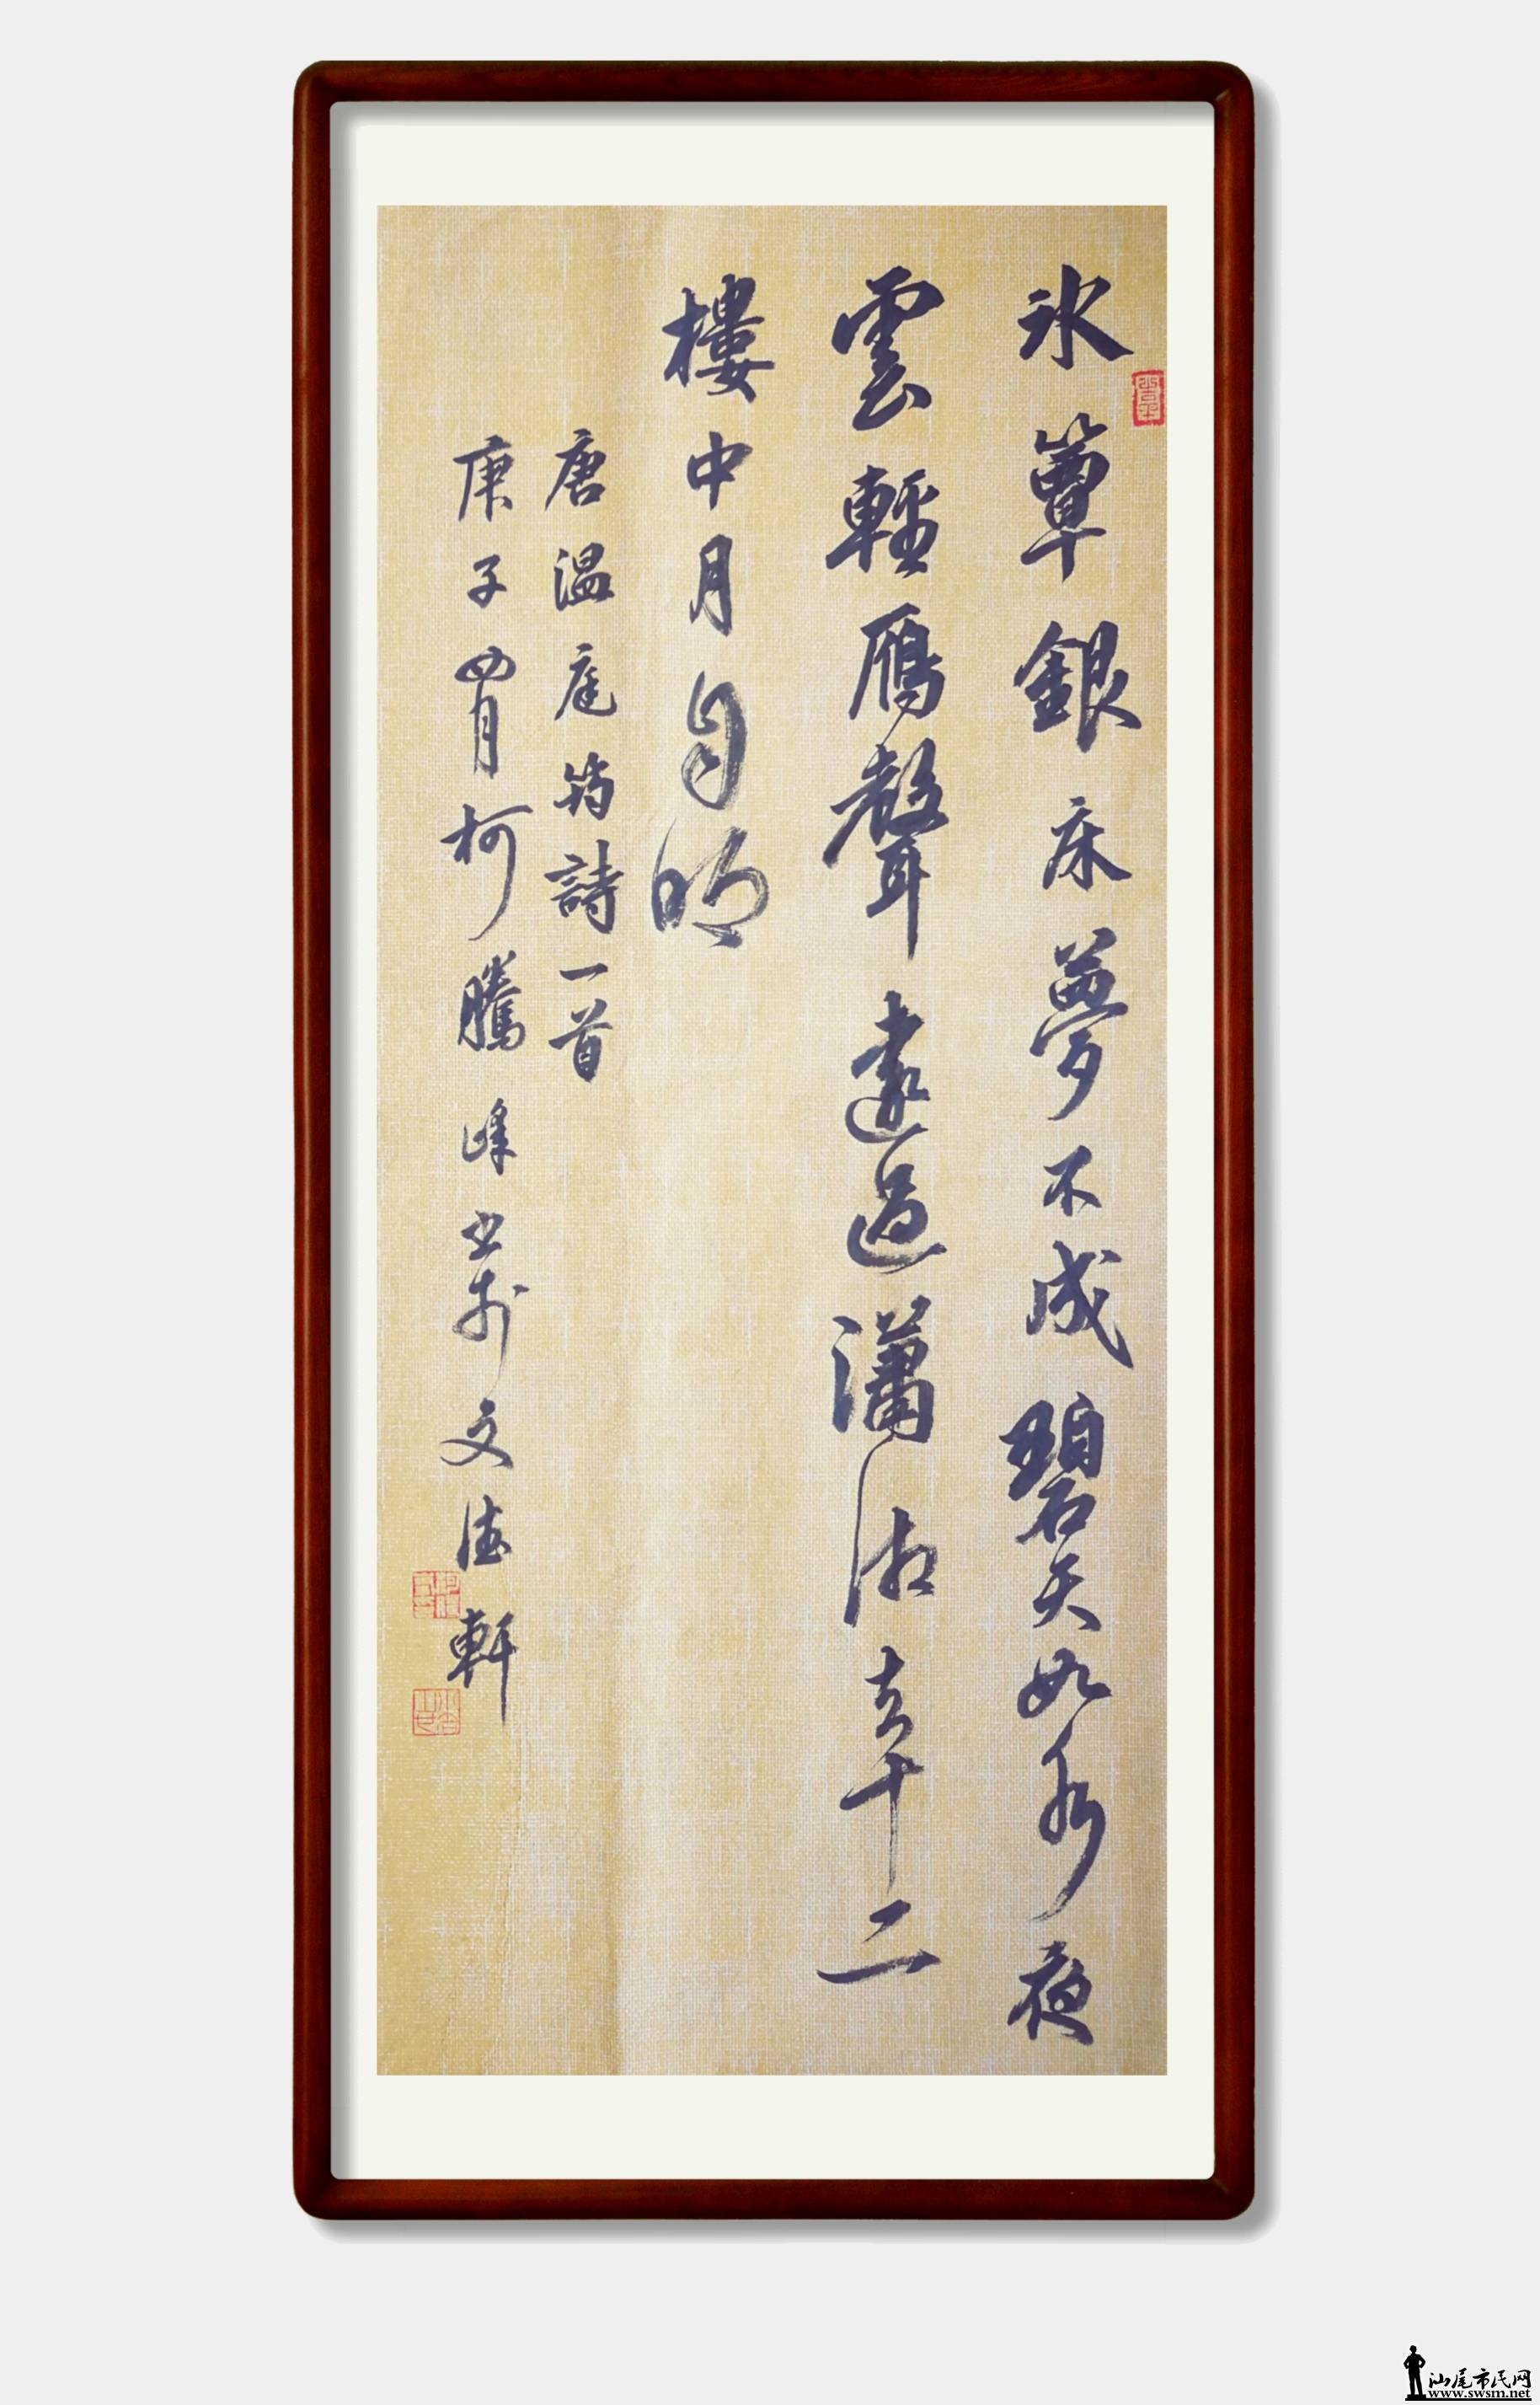 冰簟銀床夢不成碧天如水夜
雲輕雁聲遠過瀟湘去十二
樓中月自明
唐温庭筠詩一首
庚子四月柯騰峰书於文德軒
汕尾市民网
www.swsm.net